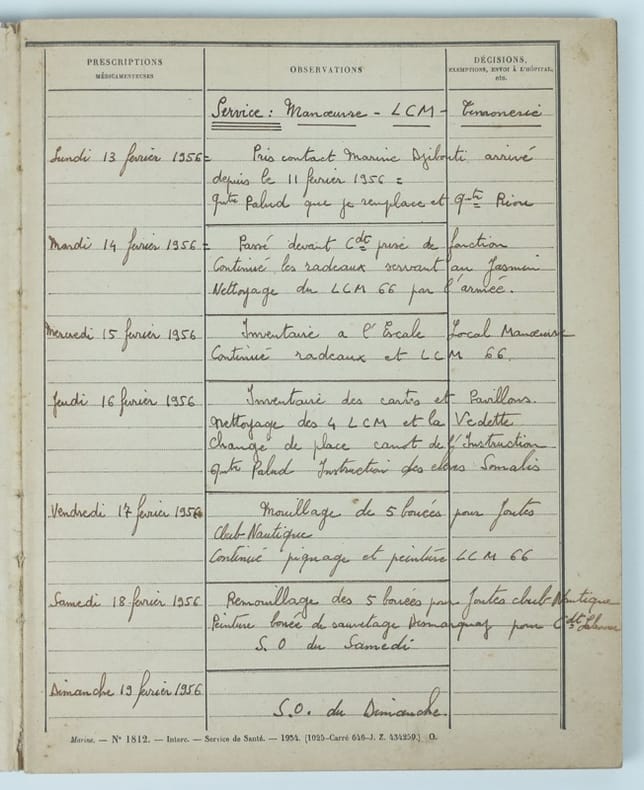 PRESCRIPTIONS
MÉDICAMENTEUSES
OBSERVATIONS
DÉCISIONS,
EXEMPTIONS, ENVOI À L'HÔPITAL,
etc.
Service : Manœuvre - LCM - Timonerie
Lundi 13 février 1956 = Pris contact Marine Djibouti arrivé
depuis le 11 février 1956 =
Qmtre Palud que je remplace et Qmtre Riou
Mardi 14 février 1956 = Passé devant Cdt prise de fonction
Continué les radeaux servant au Jasmin
Nettoyage du LCM 66 par l'armée.
Mercredi 15 février 1956 Inventaire a l'Escale Local Manœuvre
Continué radeaux et LCM 66.
Jeudi 16 février 1956 Inventaire des cartes et Pavillons.
Nettoyage des 4 LCM et la Vedette
Change de place canot de l'Instruction
Qmtre Palud Instruction des elèves Somalis
Vendredi 17 février 1956 Mouillage de 5 bouées pour Joutes
Club-Nautique
Continué piquage et peinture LCM 66
Samedi 18 février 1956 Remouillage des 5 bouées pour Joutes club-Nautique
Peinture bouée de sauvetage pour Cdt
S.O du Samedi
Dimanche 19 février 1956
S.O. du Dimanche
Marine. — N° 1812. — Interc. — Service de Santé. — 1954. (1025-Carré 646-J. Z. 434259.) O.